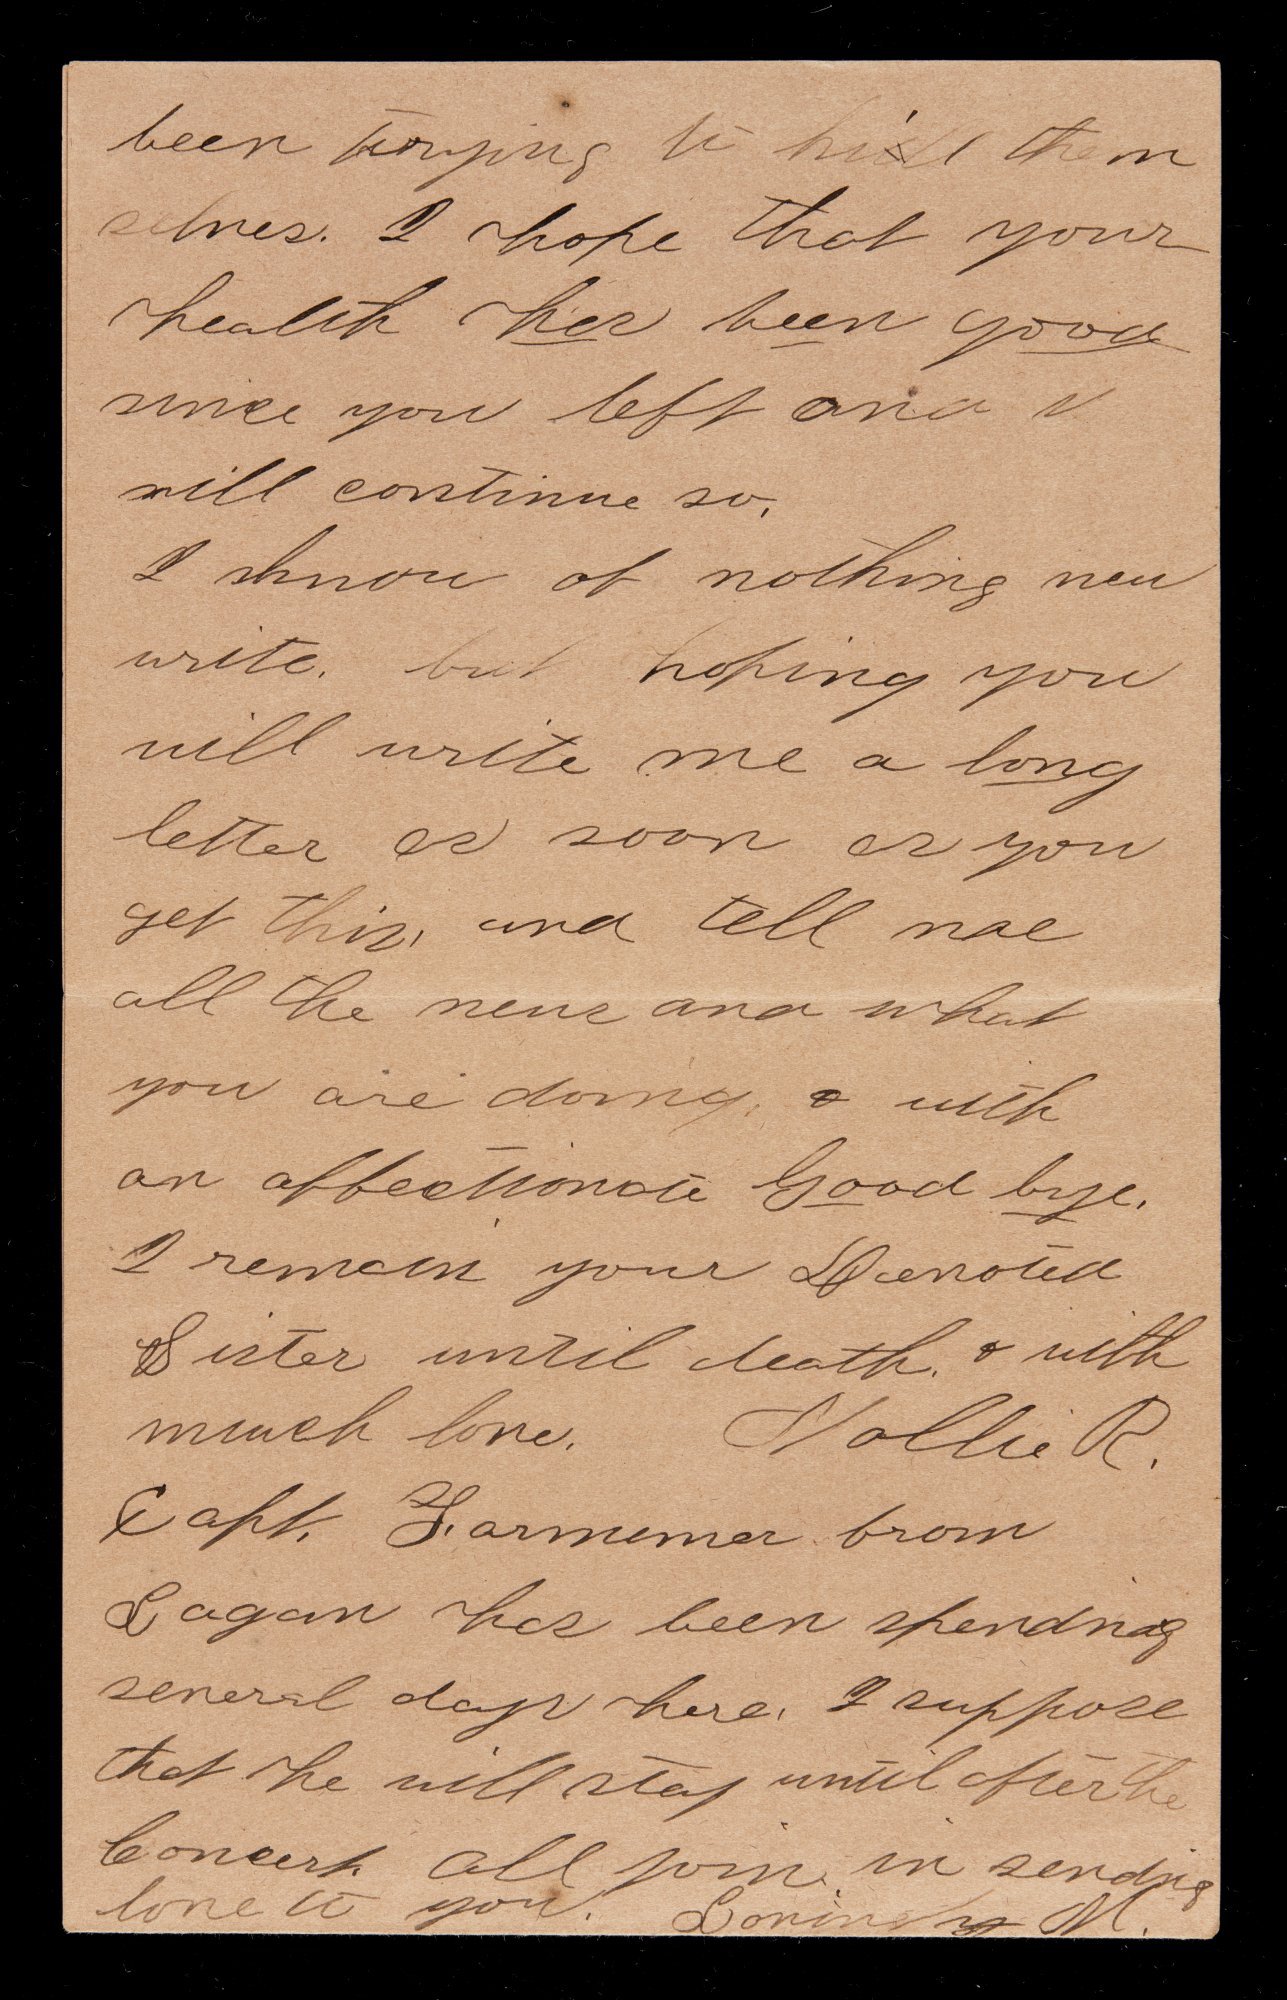 been trying to hide them
selves. I hope that your
health has been good
since you left and
will continue so.
I know of nothing new
write. but hoping you
will write me a long
letter as soon as you
get this, and tell me
all the news and what
you are doing, & with
an affectionate Good bye.
I remain your Devoted
Sister until death. & with
much love. Mollie R.
Capt. from
Logan has been spending
several days here, I suppose
that he will stay until after the
Concert. all join in sending
love to you. Lovingly M.